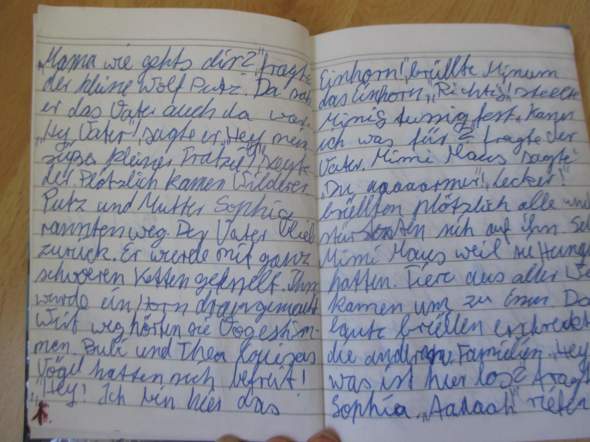 „Mama wie gehts dir?" fragte
der kleine Wolf Putz. Da sah
er das Vater auch da war.
„Hey Vater!", sagte er. Hey mein
süßer kleiner Fratze!", sagte
der. Plötzlich kamen Wilderer
Putz und Mutter Sophia
rannten weg. Der Vater blieb
zurück. Er wurde mit ganz
schweren Ketten gefesselt. Ihm
wurde ein Horn drangemacht
Weit weg hörten sie Vogelstim-
men. Bubi und Thea
Vögel hatten sich befreit!
„Hey! Ich bin hier das
Einhorn!", brüllte Minum
das Einhorn. „Richtig!" stellte
Mimi fest. Kann
ich was für ? fragte der
Vater. Mimi Maus sagte
„Du aaaaarmer!" „Lecker!"
brüllten plötzlich alle und
sich auf ihn.
Mimi Maus weil sie Hunger
hatten. Tiere aus aller
kamen um zu
laute brüllen erschreckt
die anderen Familien. „Hey
was ist hier los?
Sophia. „Aaaaah"